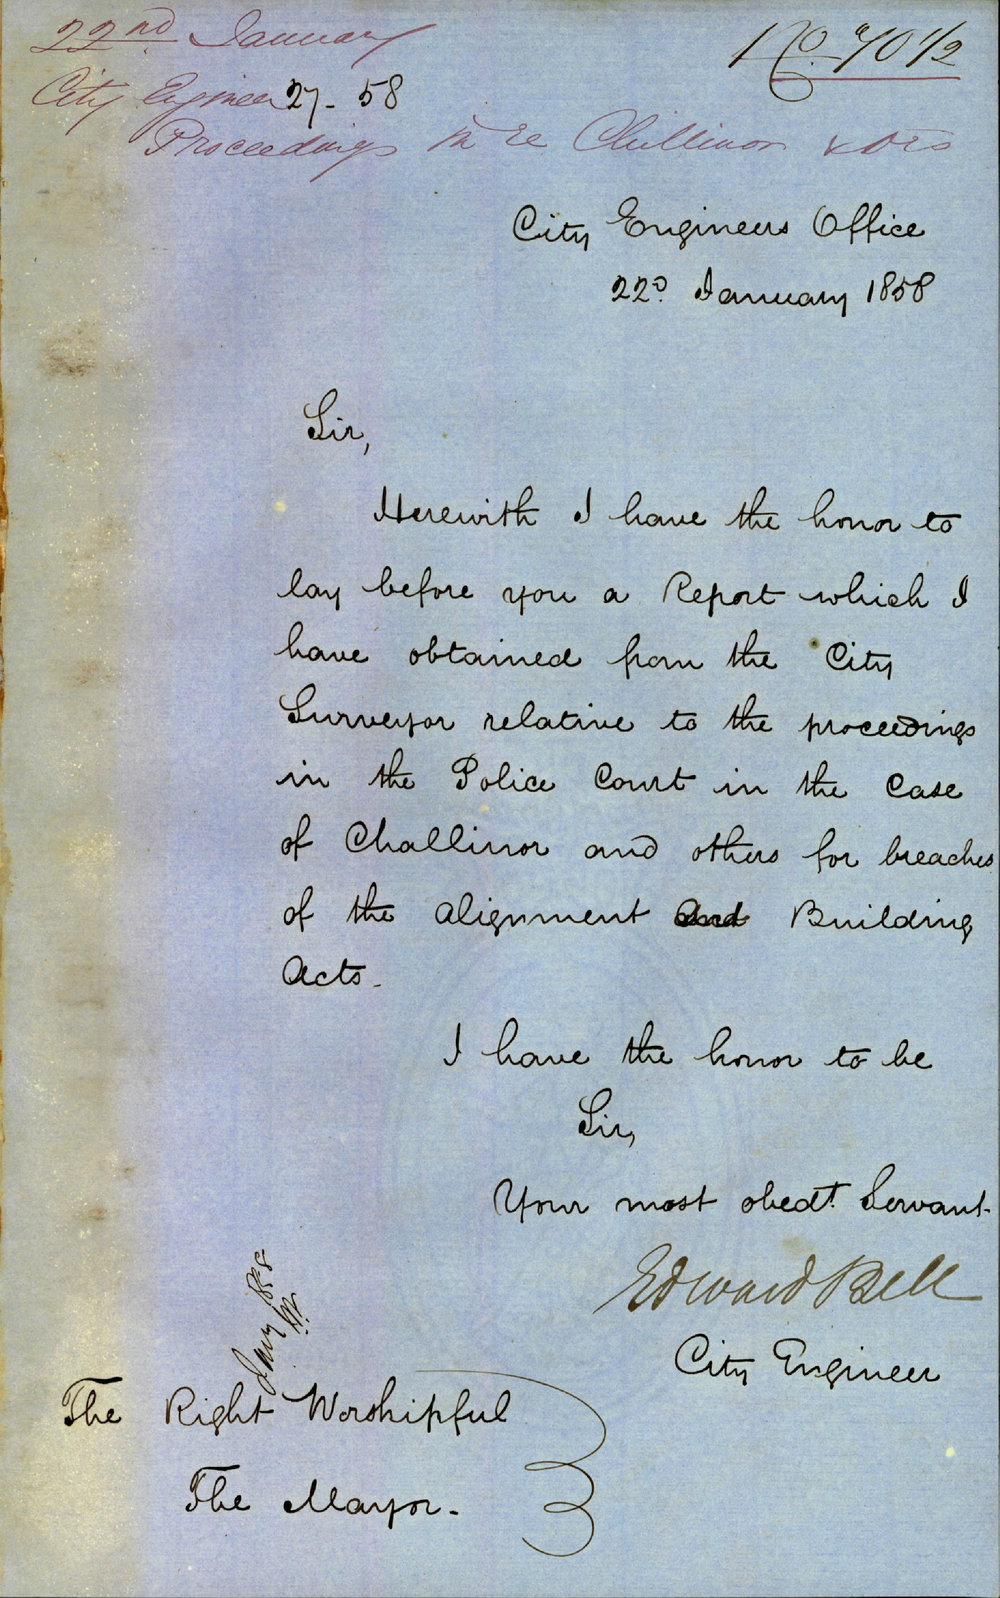 22nd January
No 70 1/2
City Engineer 27-58
Proceedings in re Challinor & Ors
City Engineers Office
22d January 1858
Sir,
Herewith I have the honor to
lay before you a Report which I
have obtained from the City
Surveyor relative to the proceedings
in the Police Court in the Case
of Challinor and others for breaches
of the alignment and Building
Acts.
I have the honor to be
Sir,
Your most obedt. Servant
Edward Bell
City Engineer
Jany 1858
The Right Worshipful
The Mayor.